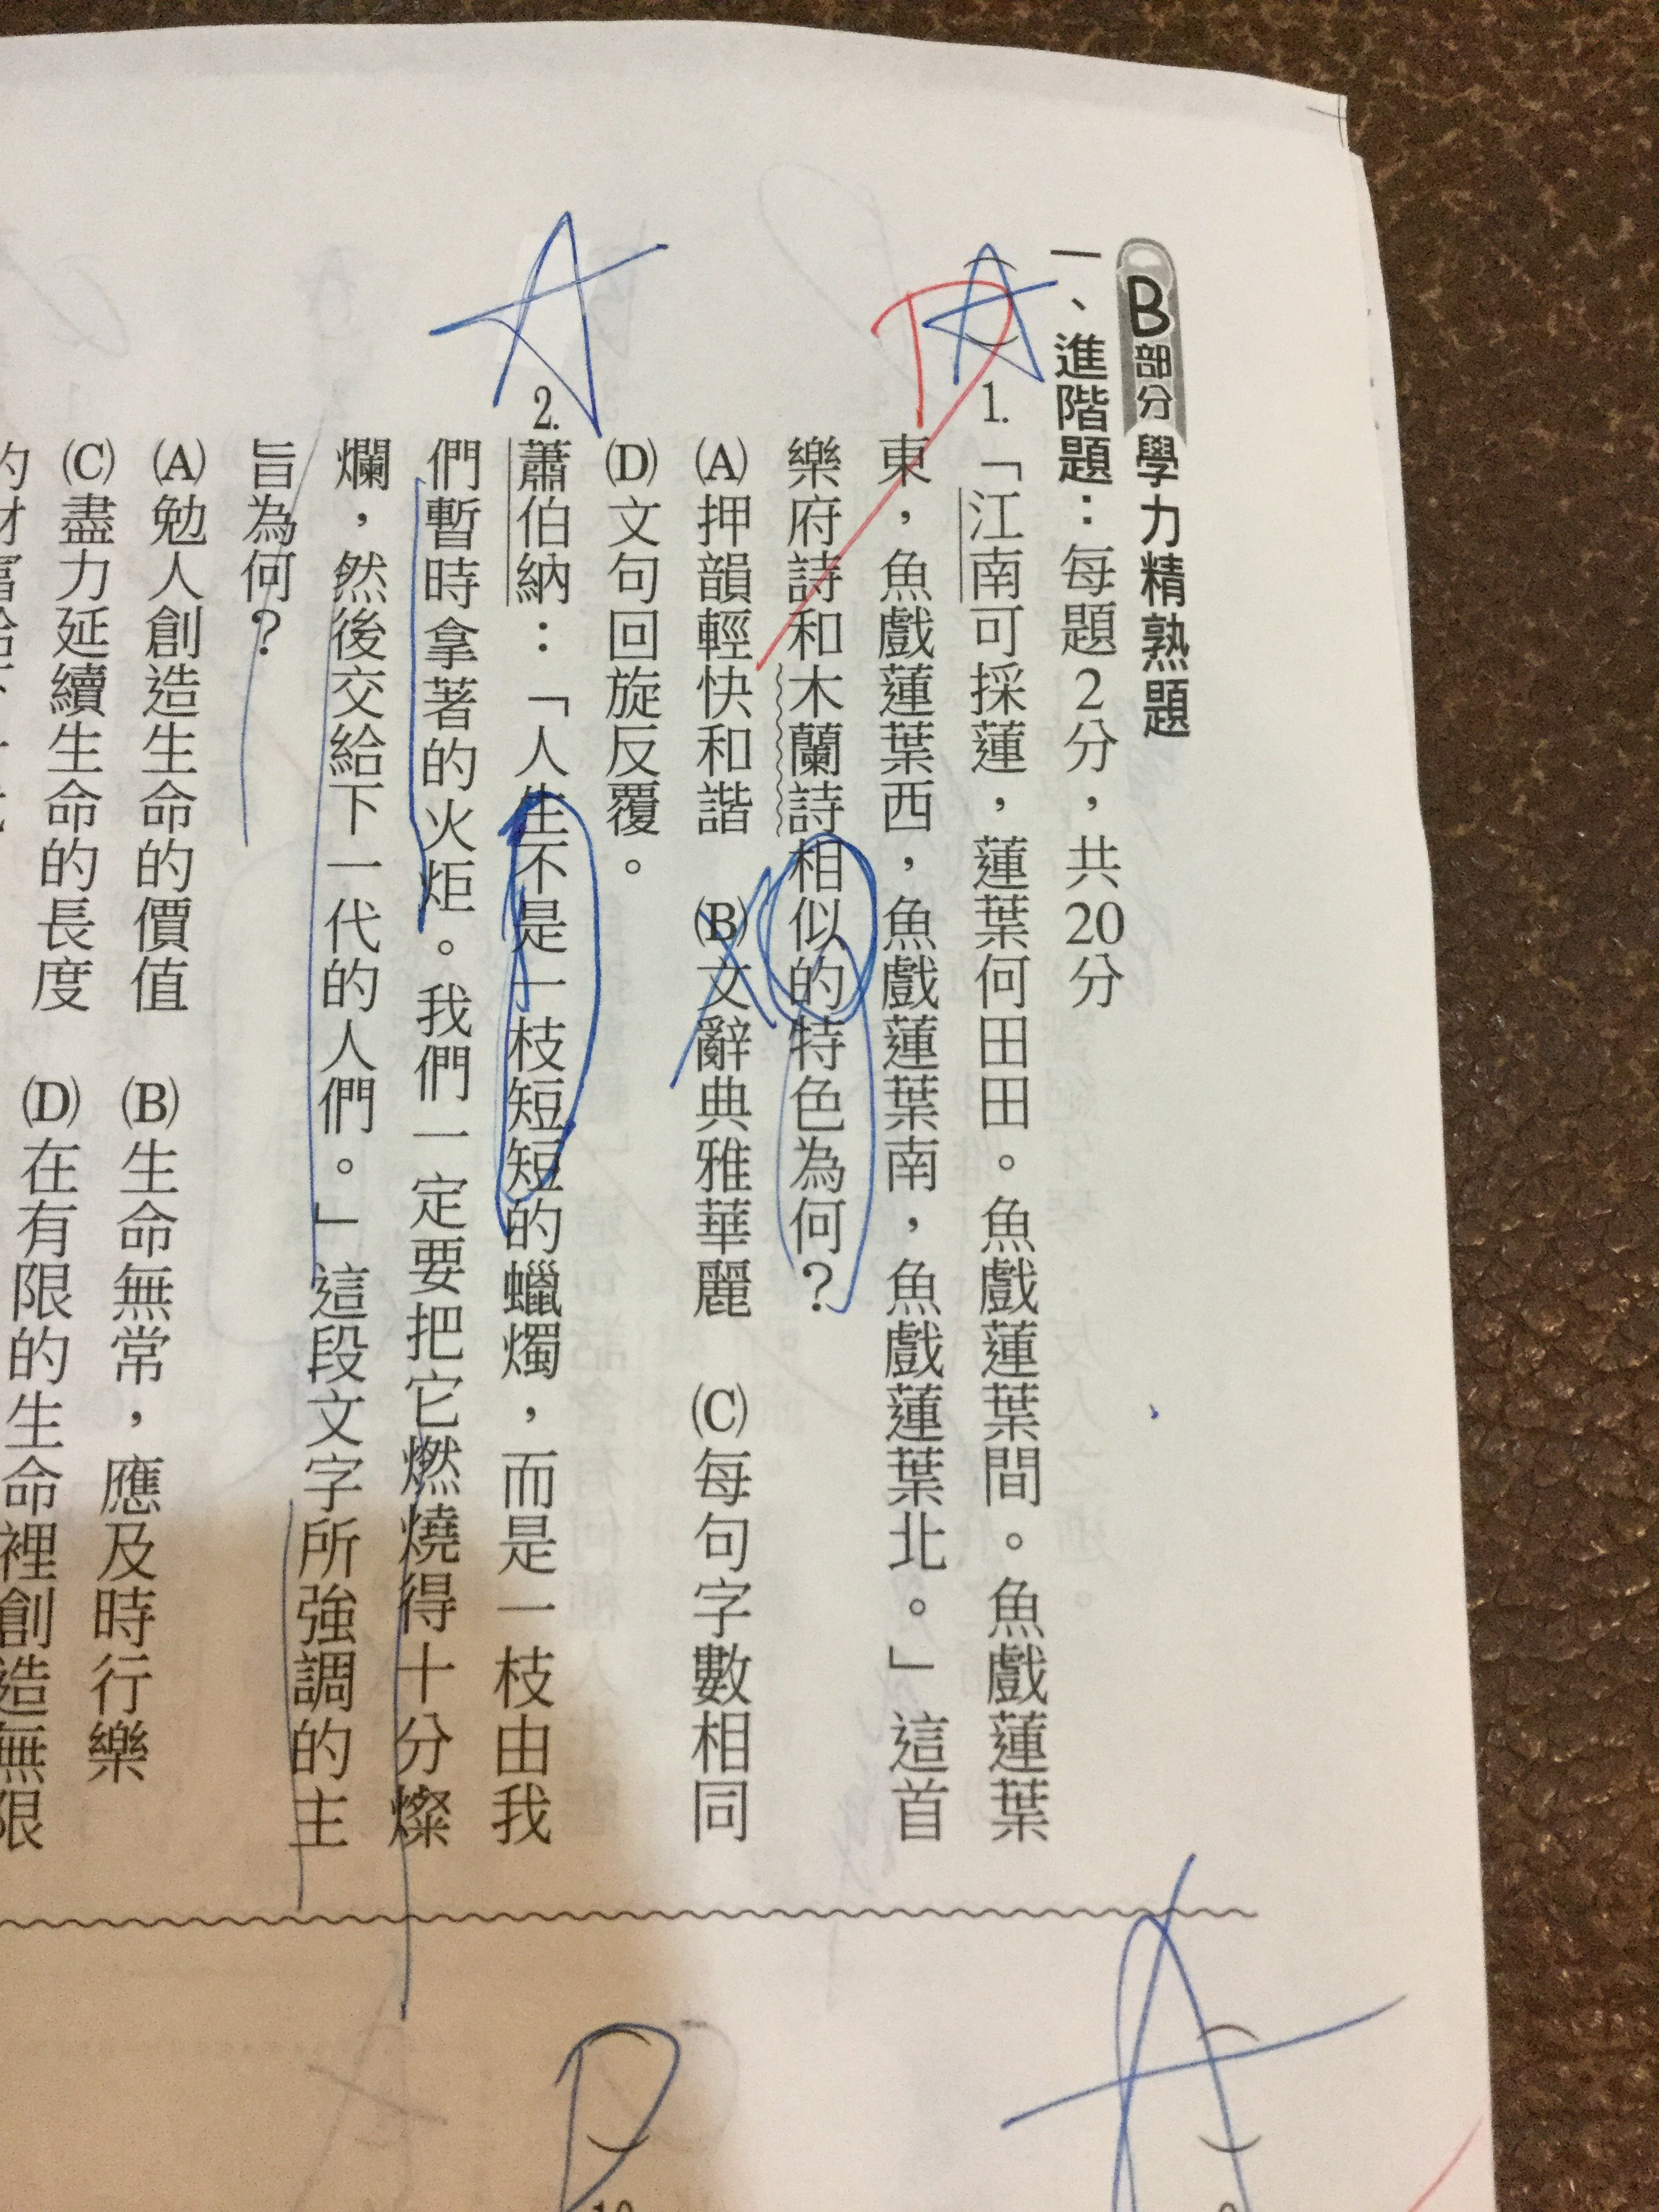 B部分 學力精熟題
一、進階題：每題2分，共20分
A
D
( )1.「江南可採蓮，蓮葉何田田。魚戲蓮葉間。魚戲蓮葉
東，魚戲蓮葉西，魚戲蓮葉南，魚戲蓮葉北。」這首
樂府詩和木蘭詩相似的特色為何？
(A)押韻輕快和諧 (B)文辭典雅華麗 (C)每句字數相同
(D)文句回旋反覆。
A
2.蕭伯納：「人生不是一枝短短的蠟燭，而是一枝由我
們暫時拿著的火炬。我們一定要把它燃燒得十分燦
爛，然後交給下一代的人們。」這段文字所強調的主
旨為何？
(A)勉人創造生命的價值 (B)生命無常，應及時行樂
(C)盡力延續生命的長度 (D)在有限的生命裡創造無限
A
( )
D
( )10